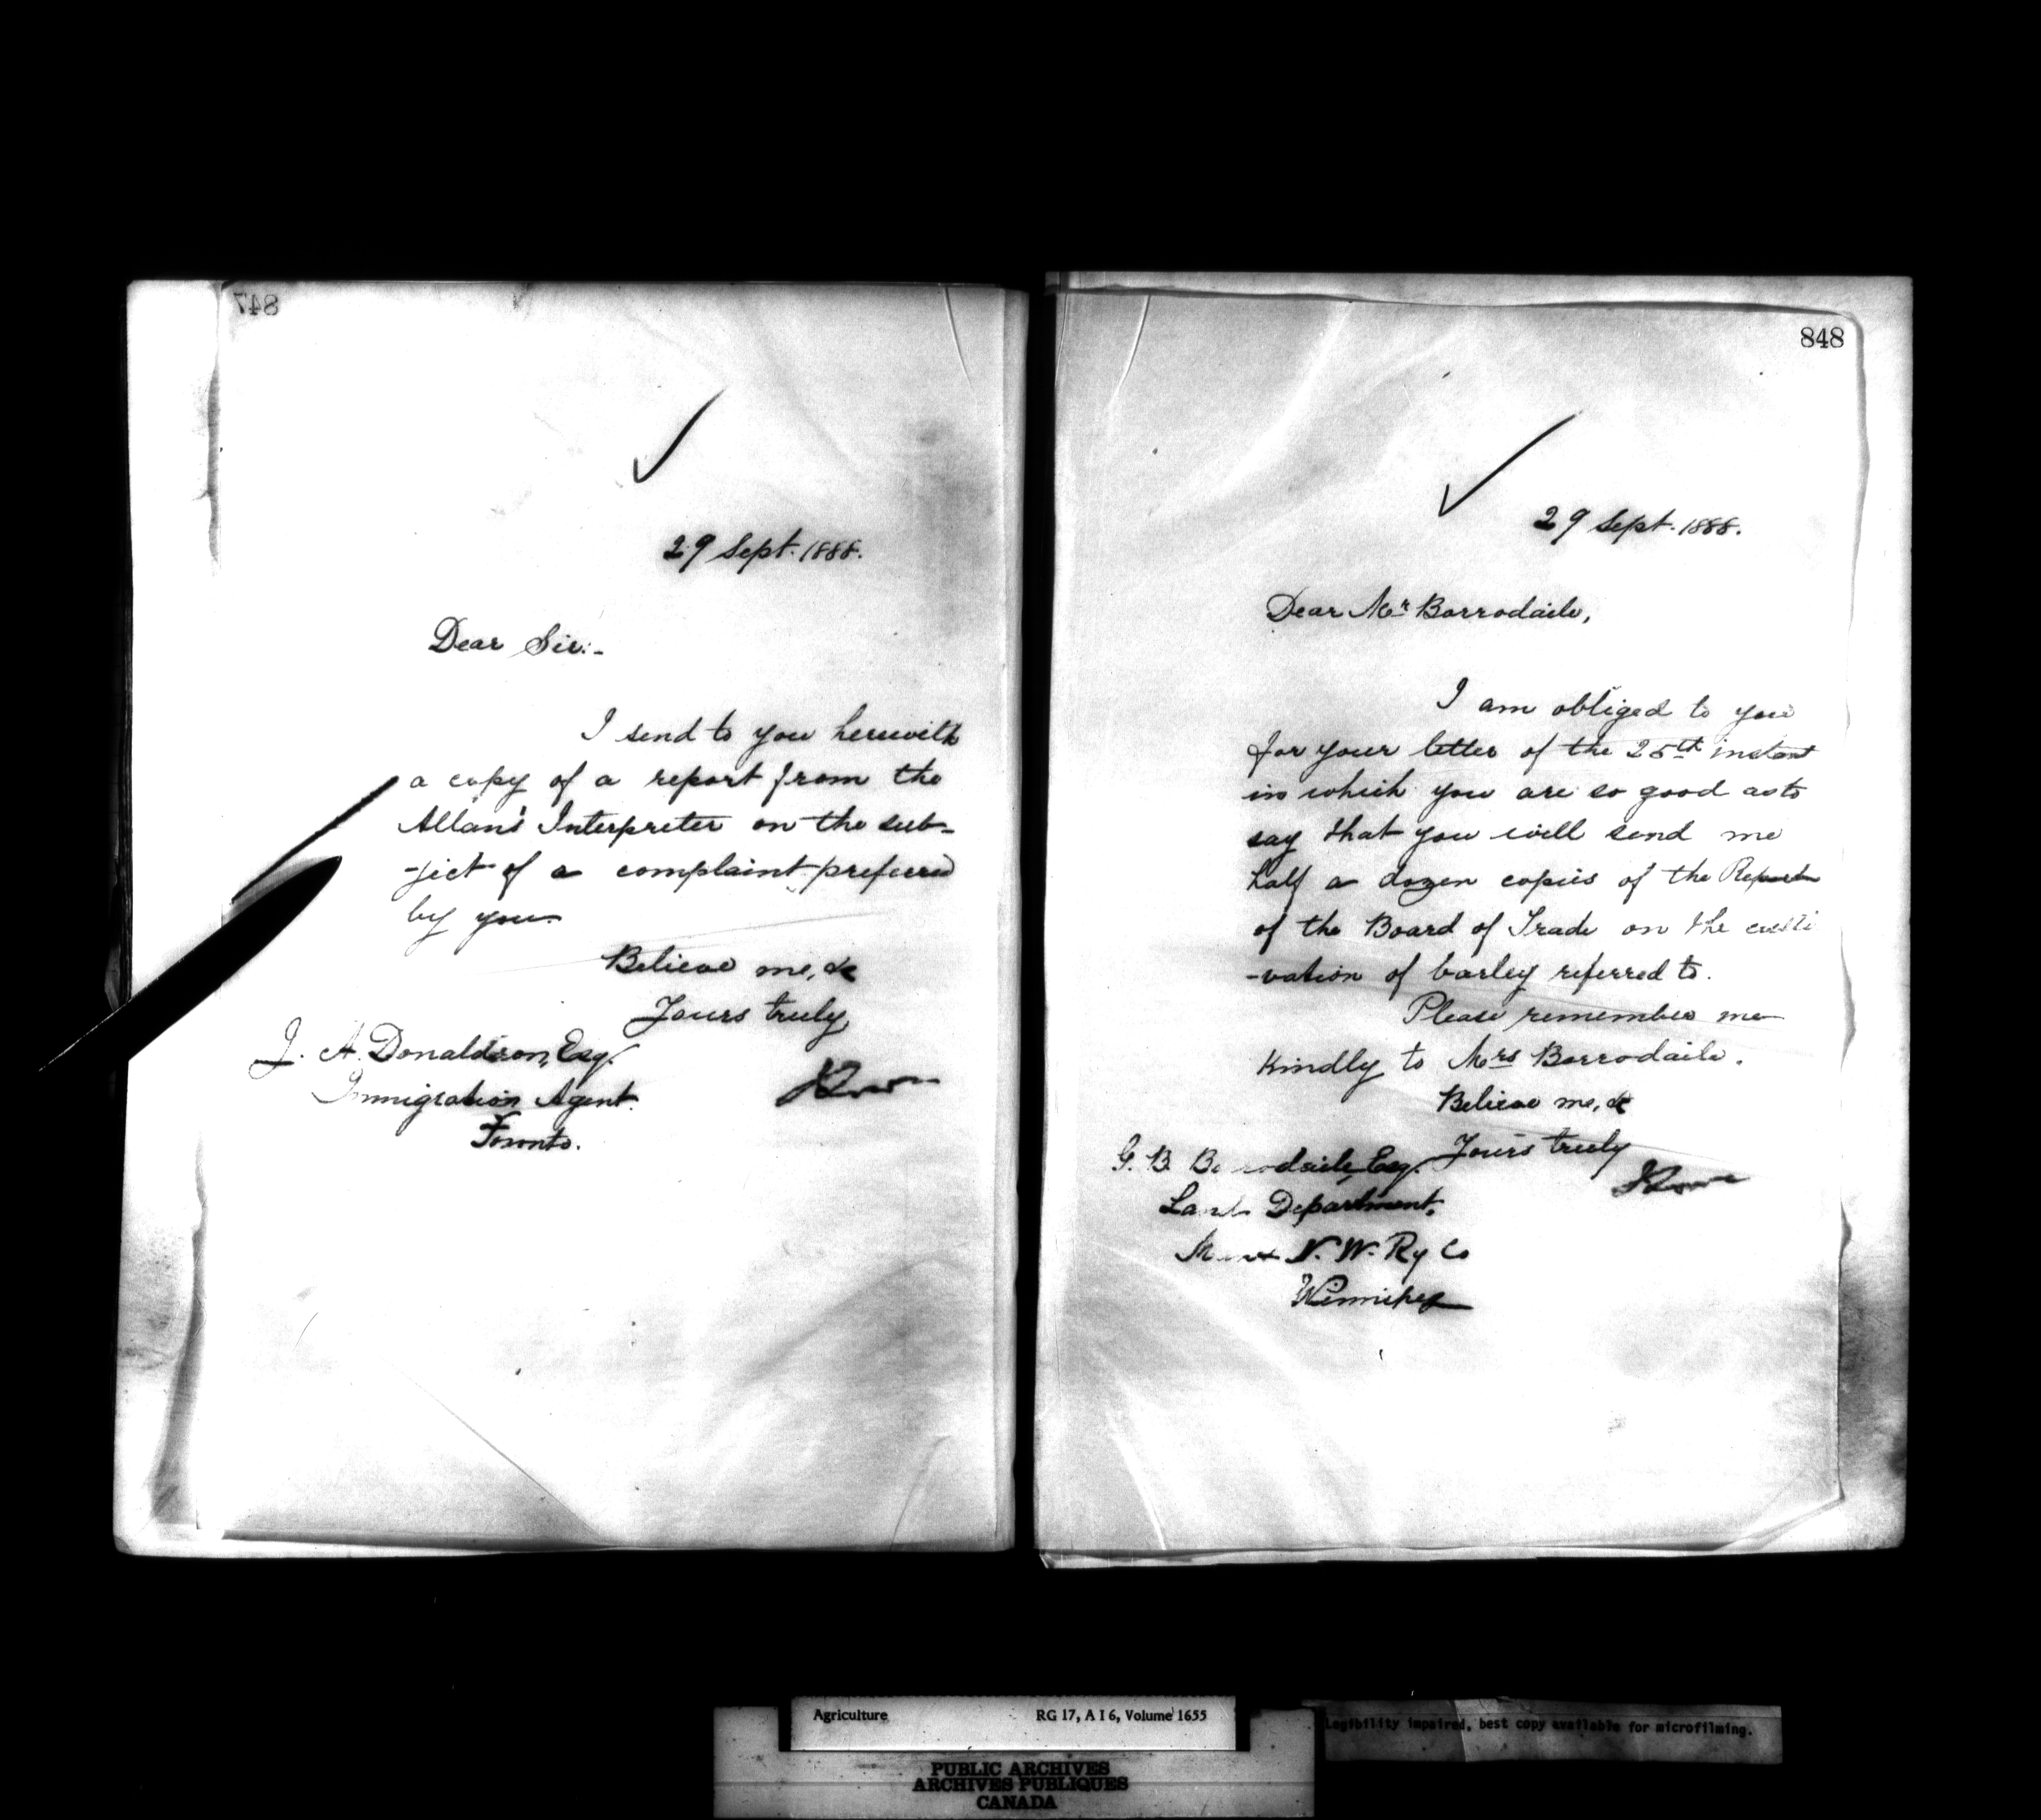 847
29 Sept. 1888.
Dear Sir:-
I send to you herewith
a copy of a report from the
Allan's Interpreter on the sub-
-ject of a complaint preferred
by you.
Believe me, &c
Yours truly
J. A. Donaldson, Esq.
Immigration Agent.
Toronto.
848
29 Sept. 1888.
Dear Mr Borrodaile,
I am obliged to you
for your letter of the 25th instant
in which you are so good as to
say that you will send me
half a dozen copies of the Report
of the Board of Trade on the culti
-vation of barley referred to.
Please remember me
kindly to Mrs Borrodaile.
Believe me, &c
Yours truly
G. B. Borrodaile, Esq.
Land Department.
N. W. Ry Co
Winnipeg
Agriculture RG 17, A I 6, Volume 1655
Legibility impaired, best copy available for microfilming.
PUBLIC ARCHIVES
ARCHIVES PUBLIQUES
CANADA